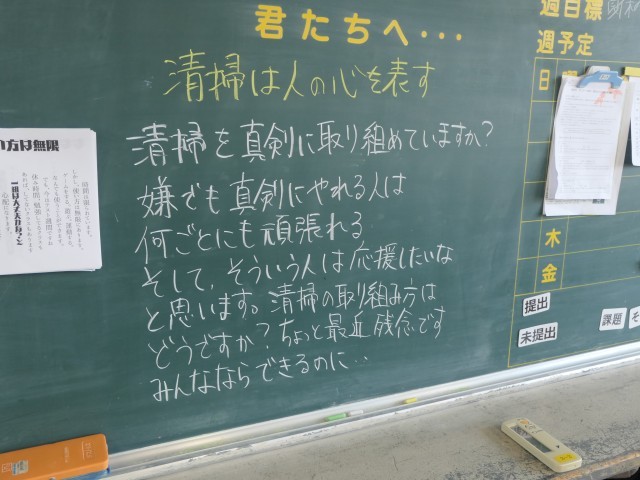 君たちへ・・・
清掃は人の心を表す
清掃を真剣に取り組めていますか?
嫌でも真剣にやれる人は
何ごとにも頑張れる
そして、そういう人は応援したいな
と思います。清掃の取り組み方は
どうですか?ちょっと最近残念です
みんなならできるのに・・
い方は無限
週目標
週予定
日
木
金
提出
未提出
課題
そ